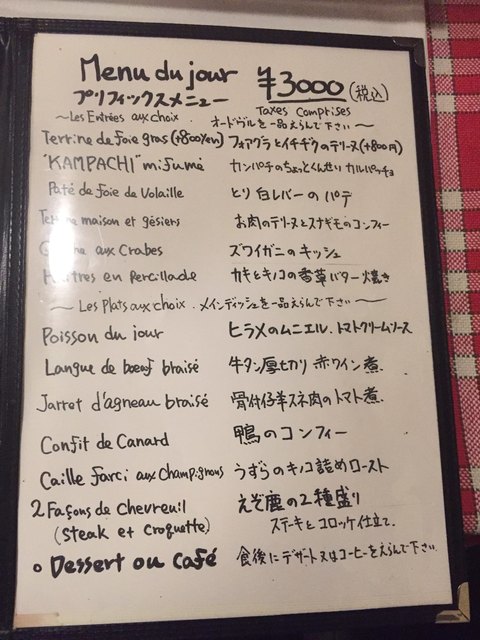 Menu du jour ¥3000 (税込)
プリフィックスメニュー Taxes Comprises
〜Les Entrées aux choix. オードヴルを一品えらんで下さい〜
Terrine de foie gras (+800yen) フォアグラとイチヂクのテリーヌ(+800円)
"KAMPACHI" mi fumé カンパチのちょっとくんせい カルパッチョ
Paté de foie de Volaille とり白レバーのパテ
Terrine maison et gésiers お肉のテリーヌとスナギモのコンフィー
aux Crabes ズワイガニのキッシュ
Huîtres en Percillade カキとキノコの香草バター焼き
〜Les Plats aux choix. メインディッシュを一品えらんで下さい〜
Poisson du jour ヒラメのムニエル、トマトクリームソース
Langue de bœuf braisé 牛タン厚切り 赤ワイン煮.
Jarret d'agneau braisé 骨付仔羊スネ肉のトマト煮.
Confit de Canard 鴨のコンフィー
Caille farci aux champignons うずらのキノコ詰めロースト
2 Façons de chevreuil えぞ鹿の2種盛り
(Steak et Croquette) ステーキとコロッケ仕立て.
○ Dessert ou Café 食後にデザート又はコーヒーをえらんで下さい.